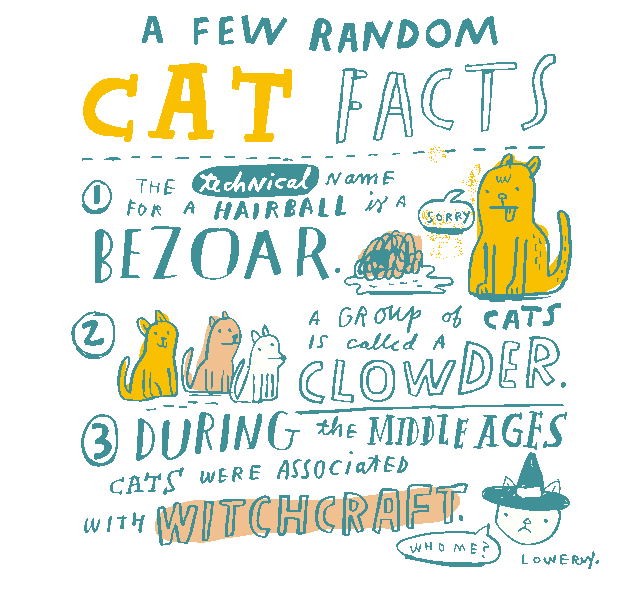 A FEW RANDOM
CAT FACTS
1 THE technical NAME
FOR A HAIRBALL is A
SORRY
BEZOAR.
2 A GROUP of CATS
IS called A
CLOWDER.
3 DURING the MIDDLE AGES
CATS WERE ASSOCIATED
WITH WITCHCRAFT.
WHO ME?
LOWERY.